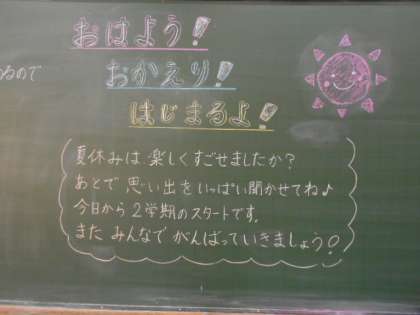 おはよう!
るので
おかえり!
はじまるよ!
夏休みは、楽しくすごせましたか?
あとで思い出をいっぱい聞かせてね♪
今日から2学期のスタートです。
またみんなでがんばっていきましょう!